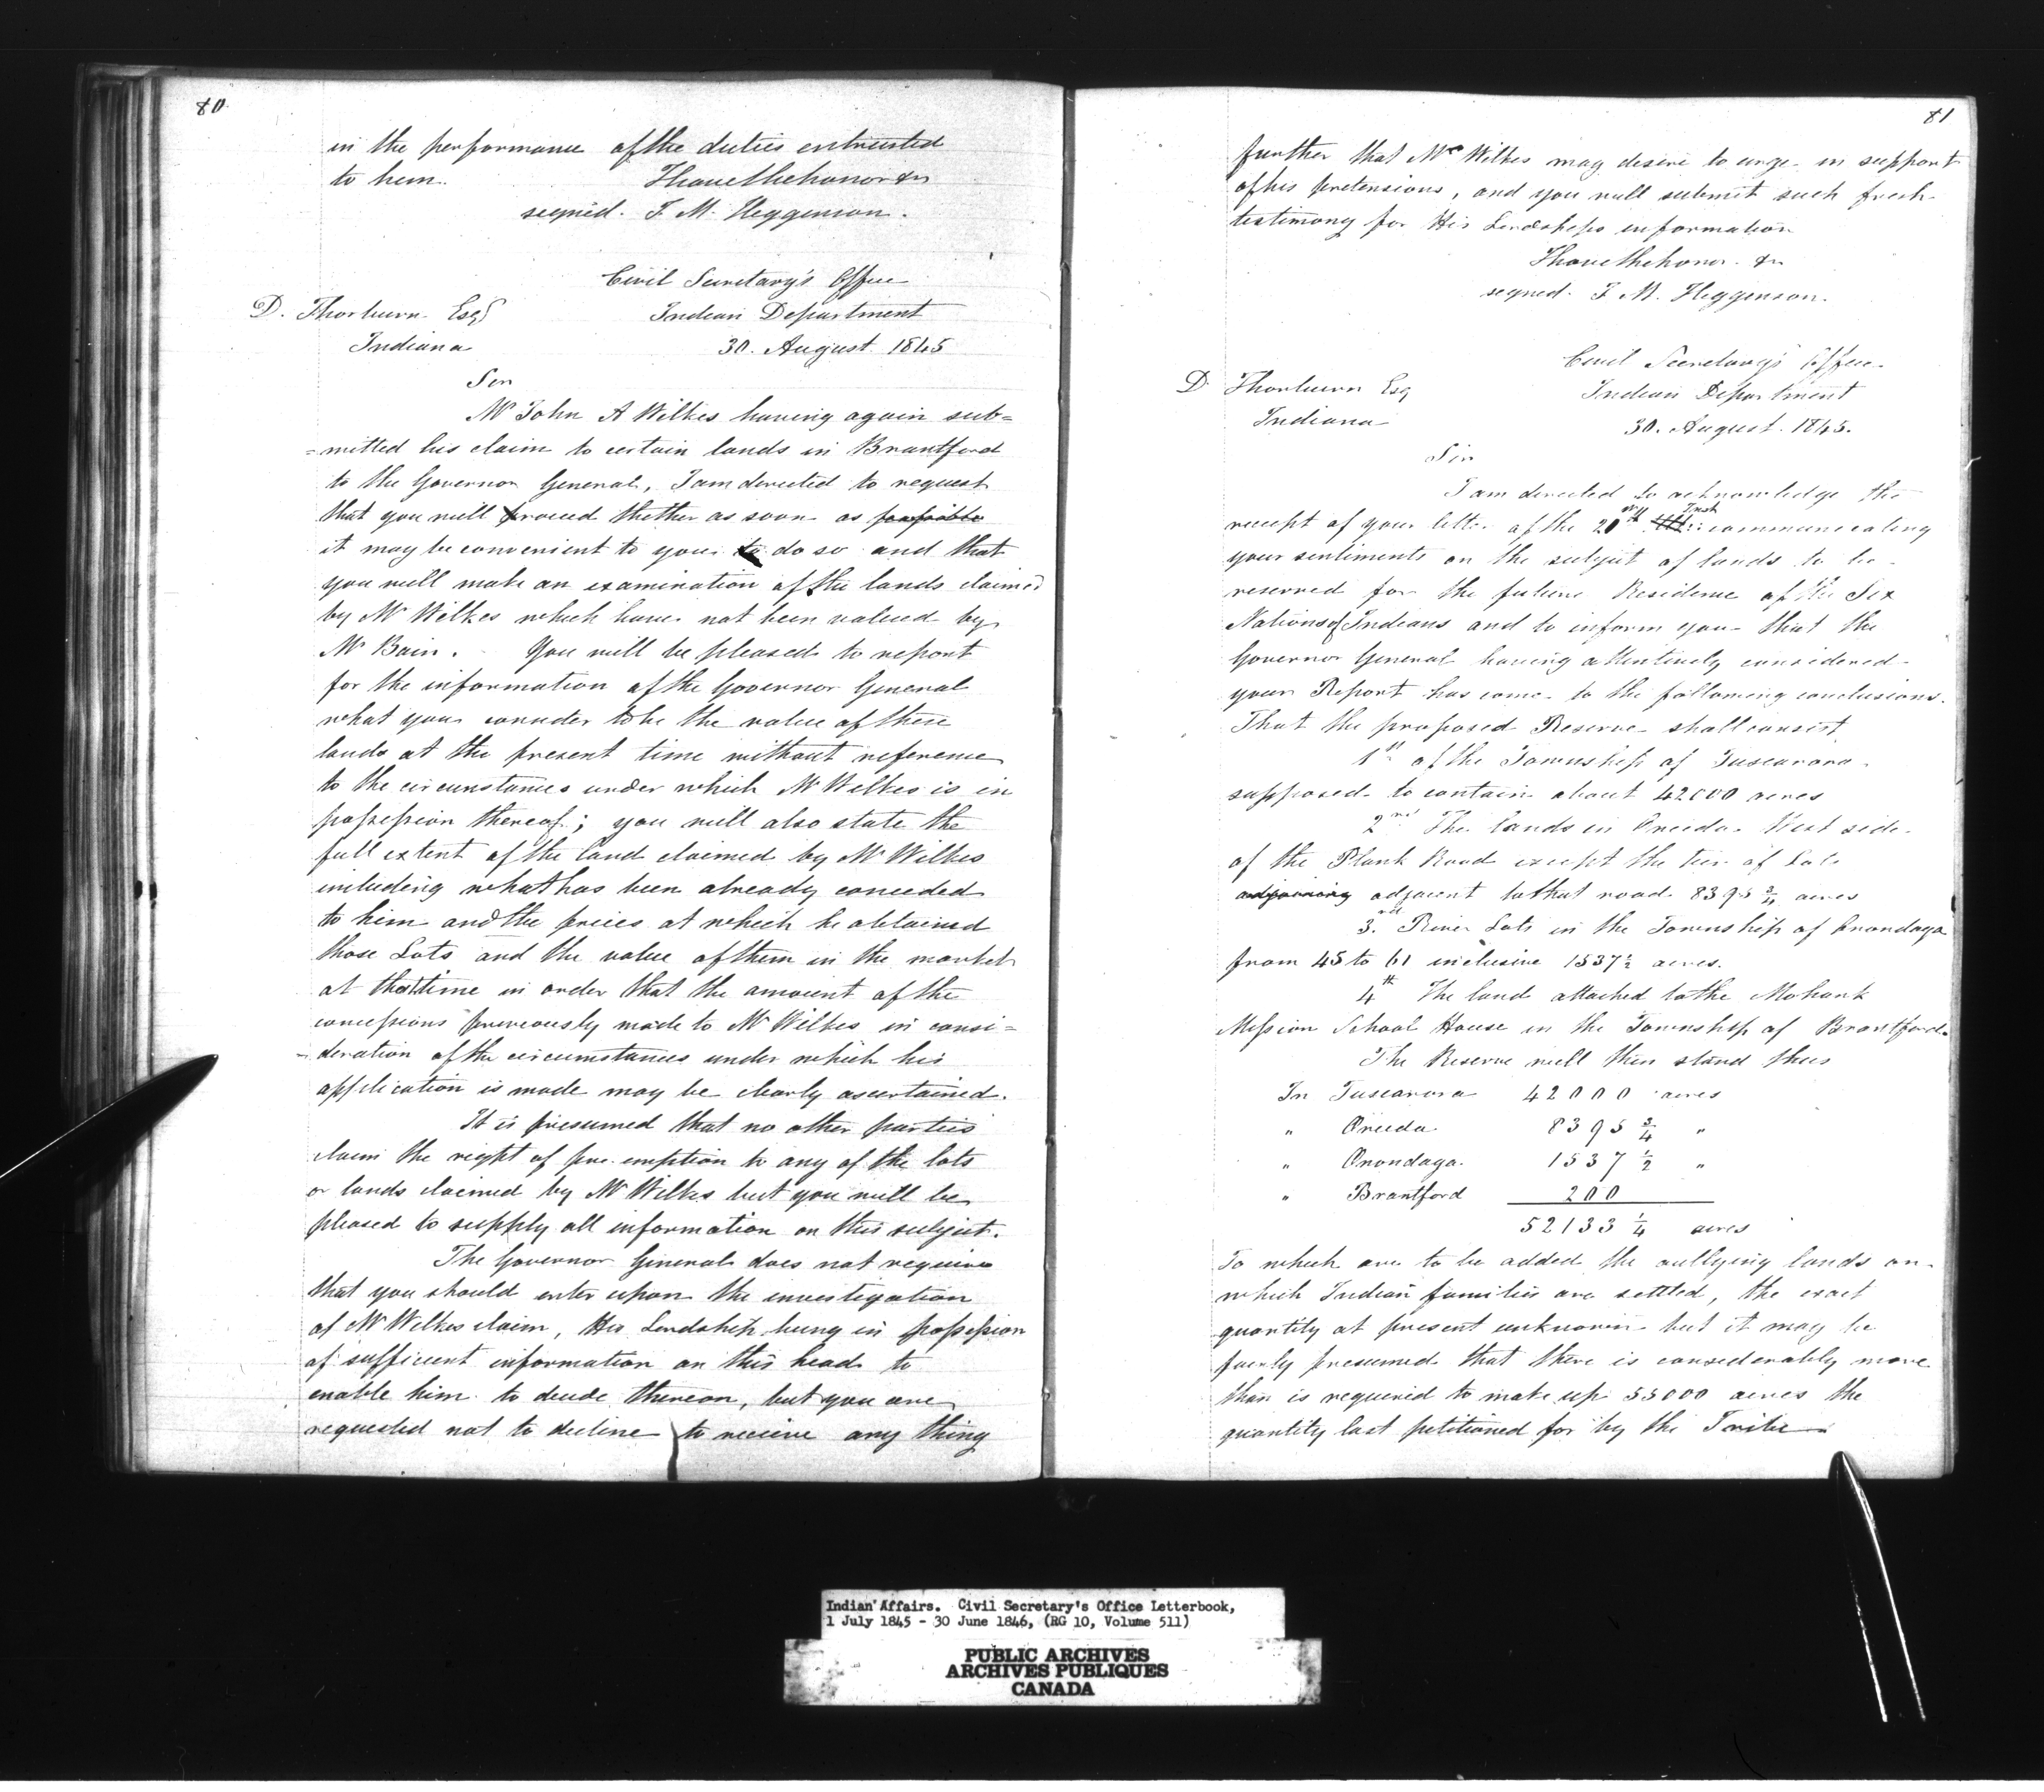 80
in the performance of the duties entrusted
to him. I have the honor &c
signed. J. M. Higginson.
Civil Secretary's Office
D. Thorburn Esqr Indian Department
Indiana 30. August. 1845
Sir
Mr John A Wilkes having again sub=
=mitted his claim to certain lands in Brantford
to the Governor General, I am directed to request
that you will proceed thither as soon as possible
it may be convenient to you to do so and that
you will make an examination of the lands claimed
by Mr Wilkes which have not been valued by
Mr Bain. You will be pleased to report
for the information of the Governor General
what you consider to be the value of these
lands at the present time without reference
to the circumstances under which Mr Wilkes is in
possession thereof; you will also state the
full extent of the land claimed by Mr Wilkes
including what has been already conceded
to him and the prices at which he obtained
those Lots and the value of them in the market
at that time in order that the amount of the
concessions previously made to Mr Wilkes in consi=
=deration of the circumstances under which his
application is made may be clearly ascertained.
It is presumed that no other parties
claim the right of pre-emption to any of the lots
or lands claimed by Mr Wilkes but you will be
pleased to supply all information on this subject.
The Governor General does not require
that you should enter upon the investigation
of Mr Wilkes claim, His Lordship being in possession
of sufficient information on this head to
enable him to decide thereon, but you are
requested not to decline to receive any thing
81
further that Mr Wilkes may desire to urge in support
of his pretensions, and you will submit such fresh
testimony for His Lordships information
I have the honor &c
signed. J. M. Higginson.
Civil Secretary's Office.
D Thorburn Esq Indian Department
Indiana 30. August. 1845.
Sir
I am directed to acknowledge the
receipt of your letter of the 20th Ulto: Inst communicating
your sentiments on the subject of lands to be
reserved for the future Residence of the Six
Nations of Indians and to inform you that the
Governor General having attentively considered
your Report has come to the following conclusions.
That the proposed Reserve shall consist
1st of the Township of Tuscarora
supposed to contain about 42000 acres
2nd The lands in Oneida West side
of the Plank Road except the tier of Lots
adjoining adjacent to that road 8395 3/4 acres
3rd. River Lots in the Township of Onondaga
from 45 to 61 inclusive 1537 1/2 acres.
4th The land attached to the Mohawk
Mission School House in the Township of Brantford.
The Reserve will then stand thus
In Tuscarora 42000 acres
" Oneida 8395 3/4 "
" Onondaga. 1537 1/2 "
" Brantford 200
52133 1/4 acres
To which are to be added the outlying lands on
which Indian families are settled, the exact
quantity at present unknown but it may be
fairly presumed that there is considerably more
than is required to make up 55000 acres the
quantity last petitioned for by the Tribe
Indian Affairs. Civil Secretary's Office Letterbook,
1 July 1845 - 30 June 1846, (RG 10, Volume 511)
PUBLIC ARCHIVES
ARCHIVES PUBLIQUES
CANADA